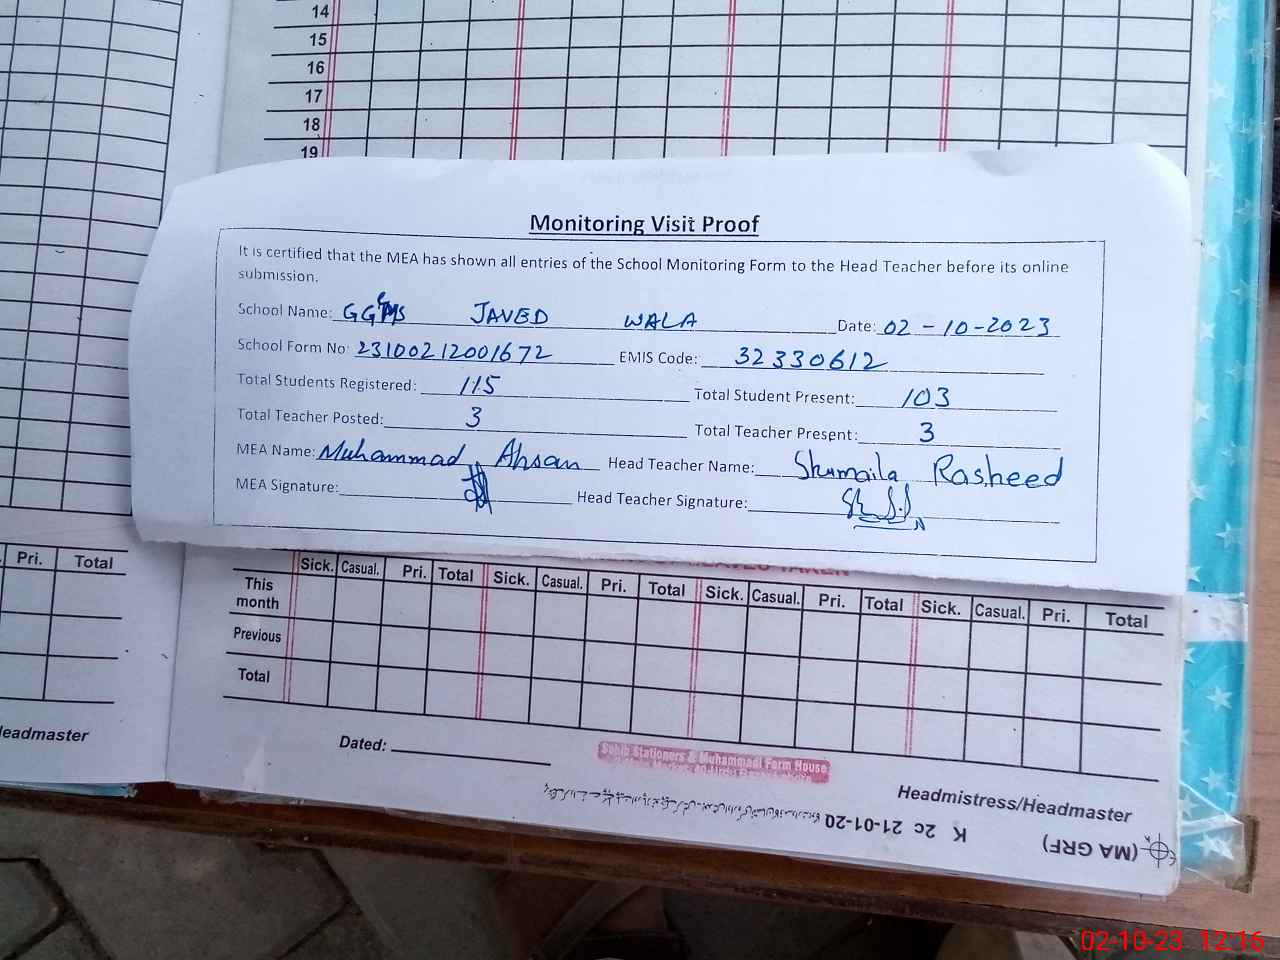 14
15
16
17
18
19
Monitoring Visit Proof
It is certified that the MEA has shown all entries of the School Monitoring Form to the Head Teacher before its online
submission.
School Name: JAVED WALA Date: 02-10-2023
School Form No: 23100212001672 EMIS Code: 32330612
Total Students Registered: 115 Total Student Present: 103
Total Teacher Posted: 3 Total Teacher Present: 3
MEA Name: Muhammad Ahsan Head Teacher Name: Shumaila Rasheed
MEA Signature: Head Teacher Signature:
Pri. Total
Sick. Casual. Pri. Total Sick. Casual. Pri. Total Sick. Casual. Pri. Total Sick. Casual. Pri. Total
This
month
Previous
Total
eadmaster
Dated:
Sohib Stationers & Muhammadi Form House
Headmistress/Headmaster
K 2c 21-01-20
(MA GRF)
02-10-23 12:16